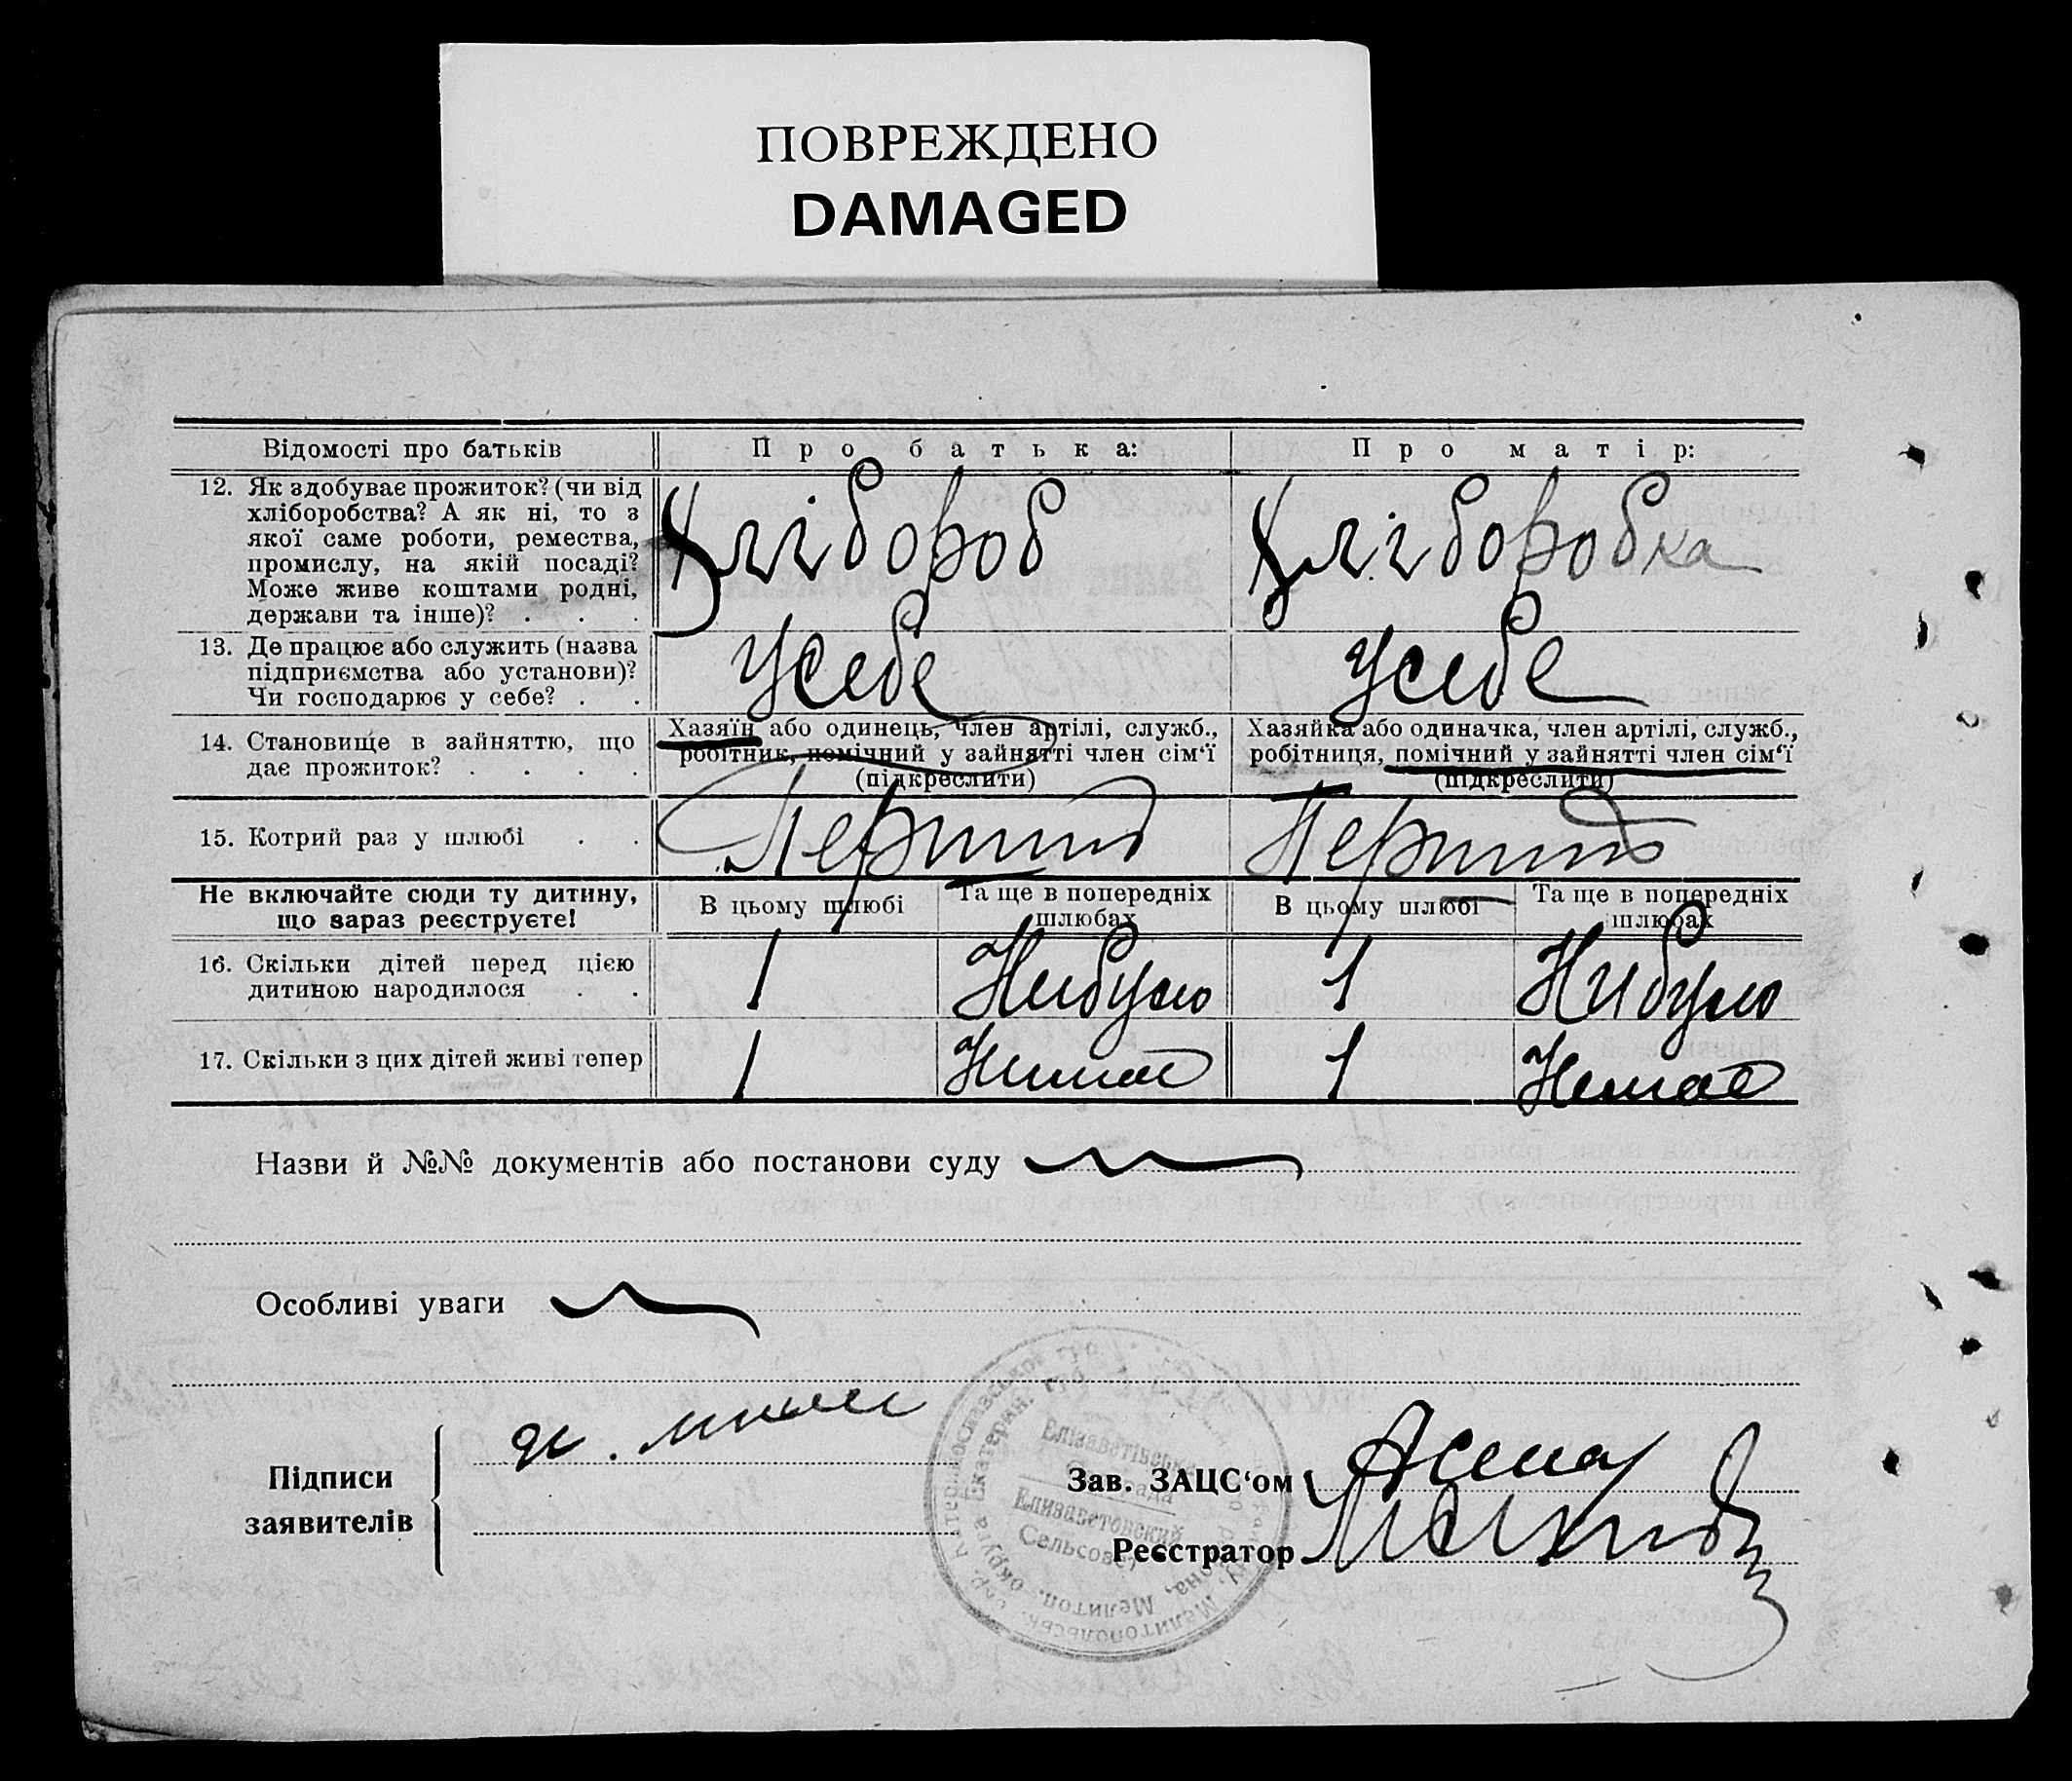 ПОВРЕЖДЕНО
DAMAGED
Відомості про батьків
Про батька:
Про матір:
12. Як здобуває прожиток? (чи від
хліборобства? А як ні, то з
якої саме роботи, ремества,
промислу, на якій посаді?
Може живе коштами родні,
держави та інше)? . . .
Хлібороб
Хліборобка
13. Де працює або служить (назва
підприємства або установи)?
Чи господарює у себе? . .
Усебе
Усебе
14. Становище в зайняттю, що
дає прожиток? . . . .
Хазяїн або одинець, член артілі, служб.,
робітник, помічний у зайнятті член сім‘ї
(підкреслити)
Хазяйка або одиначка, член артілі, служб.,
робітниця, помічний у зайнятті член сім‘ї
(підкреслити)
15. Котрий раз у шлюбі . .
Перший
Перший
Не включайте сюди ту дитину,
що зараз реєструєте!
В цьому шлюбі
Та ще в попередніх
шлюбах
В цьому шлюбі
Та ще в попередніх
шлюбах
16. Скільки дітей перед цією
дитиною народилося . .
1
Нибуло
1
Нибуло
17. Скільки з цих дітей живі тепер
1
Нимае
1
Немае
Назви й №№ документів або постанови суду
Особливі уваги
Підписи
заявителів
Зав. ЗАЦС‘ом
Реєстратор
Елізаветівська
Сільрада
Елизаветовский
Сельсовет